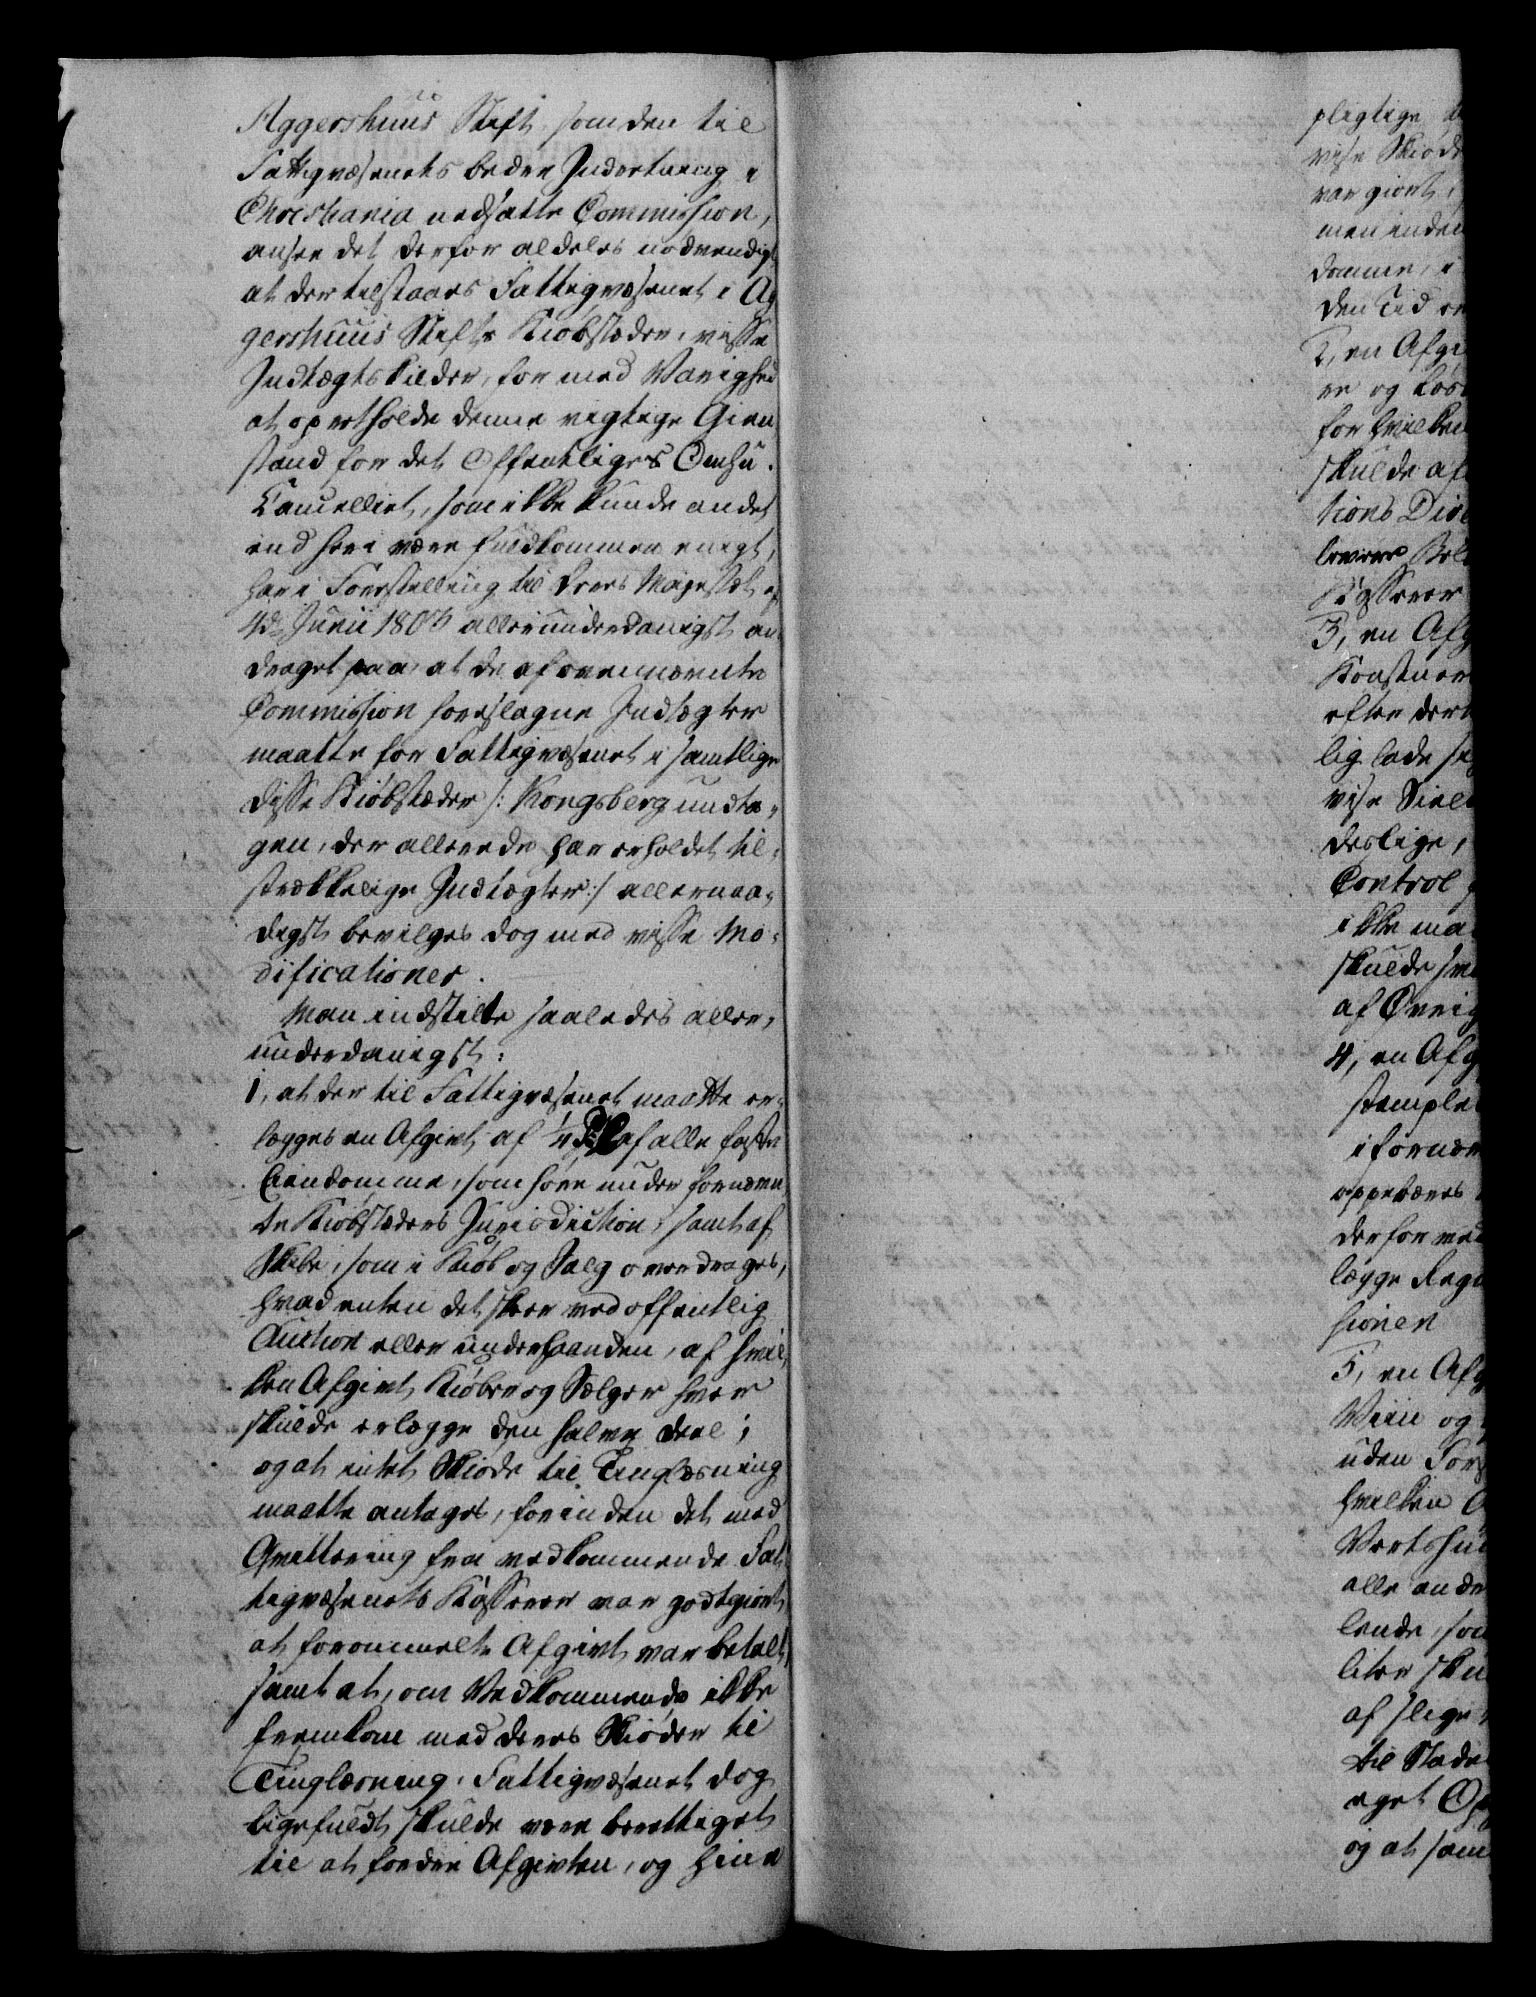 Aggershuus Stift, som den til
Fattigvæsenets bedre Indretning i
Christiania nedsatte Commission,
ansee det derfor aldeles nødvendigt
at der tilstaaes Fattigvæsenet i Ag
gershuus Stifts Kiøbstæder, visse
Indtægtskilder, for med Varighed
at opretholde denne vigtige Gien
stand for det Offentliges Omhu.
Cancelliet, som ikke kunde andet
end heri være fuldkommen enigt,
har i Forestilling til Deres Majestæt af
4de Junii 180 allerunderdanigst an
draget paa, at de af ovennævnte
Commission foreslagne Indtægter
maatte for Fattigvæsenet i samtlige
disse Kiøbstæder /: Kongsberg undta-
gen, der allerede har erholdet til-
strækkelige Indtægter :/ allernaa-
digst bevilges dog med visse Mo-
dificationer.
Man indstilte saaledes aller-
underdanigst:
1, at der til Fattigvæsenet maatte er-
lægges en Afgivt af 1/4 af alle faste
Eiendomme, som høre under fornævn
te Kiøbstæders Jurisdiction, samt af
Skibe, som i Kiøb og Salg overdrages,
hvad enten det skeer ved offentlig
Auction eller underhaanden, af hvil-
ken Afgivt Kiøber og Sælger hver
skulde erlægge den halve Deel;
og at intet Skiøde til Tinglæsning
maatte antages, forinden det med
Qvittering fra vedkommende Fat-
tigvæsenets Kasserer var godtgiort,
at forommelte Afgivt var betalt,
samt at, om Vedkommende ikke
fremkom med deres Skiøder til
Tinglæsning, Fattigvæsenet dog
ligefuldt skulde være berettiget
til at fordre Afgivten, og hine
pligtige
vise Skiøde
var giort,
men inden
domme, i
den Tid
2, en Afgi
re og Løs
for hvilken
skulde af
tions Dire
levere
Kasserer
3, en Afg
Konstner
efter der
lig lade
vise
deslige,
Control
ikke ma
skulde
af Øvrig
4, en Afg
stemple
i fornævn
oppebæres
derfor med
lægge Regn
sionen
5, en Afg
Viin og
uden For
hvilken
Vertshu
alle ande
lende, som
liter sku
af slige
til Stade
eget
og at sam